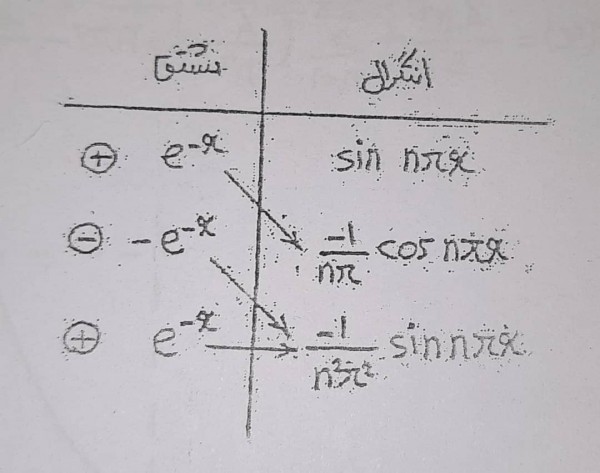 مشتق انتگرال
⊕ e^{-x} sin nπx
⊖ -e^{-x} \frac{-1}{nπ} cos nπx
⊕ e^{-x} \frac{-1}{n²π²} sin nπx